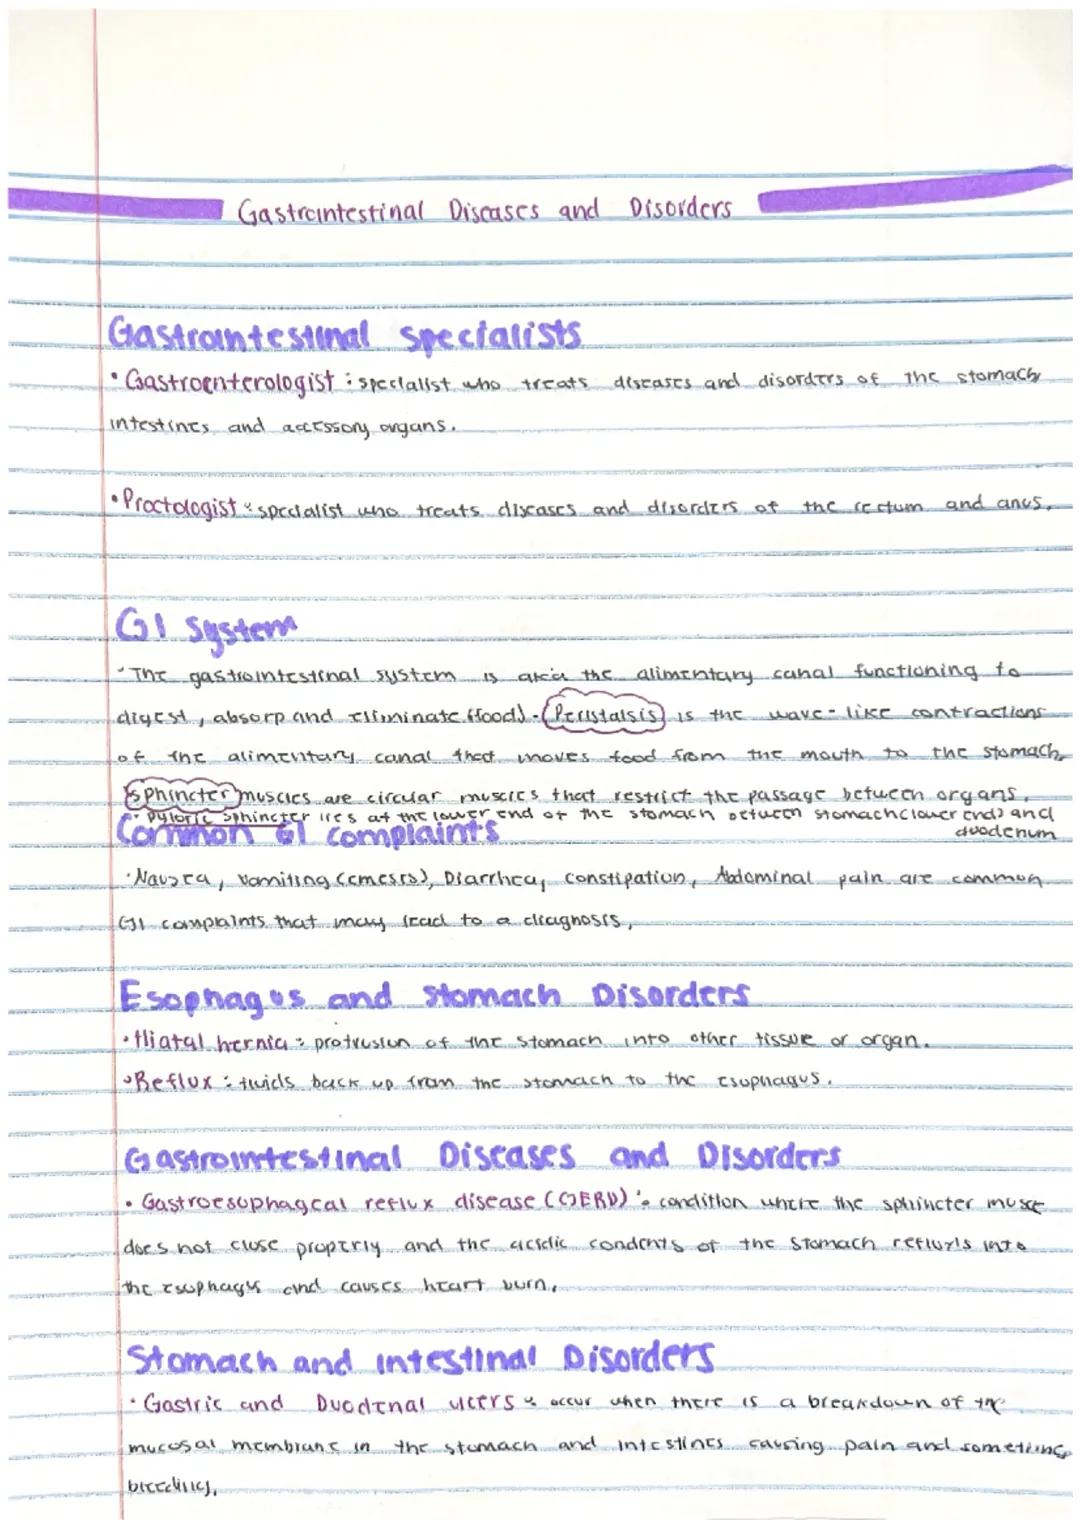 Gastrointestinal Diseases and Disorders
Gastrointestinal specialists
• Gastroenterologist : specialist who treats diseases and disorders of the stomach
intestines and accessory organs.
• Proctologist : specialist who treats diseases and disorders of the rectum and anus.
GI System
• The gastrointestinal system is aka the alimentary canal functioning to
digest, absorp and eliminate (food). Peristalsis is the wave-like contractions
of the alimentary canal that moves food from the mouth to the stomach.
Sphincter muscles are circular muscles that restrict the passage between organs.
• Pyloric sphincter lies at the lower end of the stomach between stomach(lower end) and
duodenum
Common GI complaints
• Nausea, Vomiting (emesis), Diarrhea, constipation, Abdominal pain are common
GI complaints that may lead to a diagnosis.
Esophagus and Stomach Disorders
• Hiatal hernia : protrusion of the stomach into other tissue or organ.
• Reflux : fluids back up from the stomach to the esophagus.
Gastrointestinal Diseases and Disorders
• Gastroesophageal reflux disease (GERD) : condition where the sphincter musce
does not close properly and the acidic condents of the stomach into
the esophagus and causes heart burn.
Stomach and intestinal Disorders
• Gastric and Duodenal ulcers : occur when there is a breakdown of the
mucosal membrane in the stomach and intestines causing pain and sometimes
bleeding.